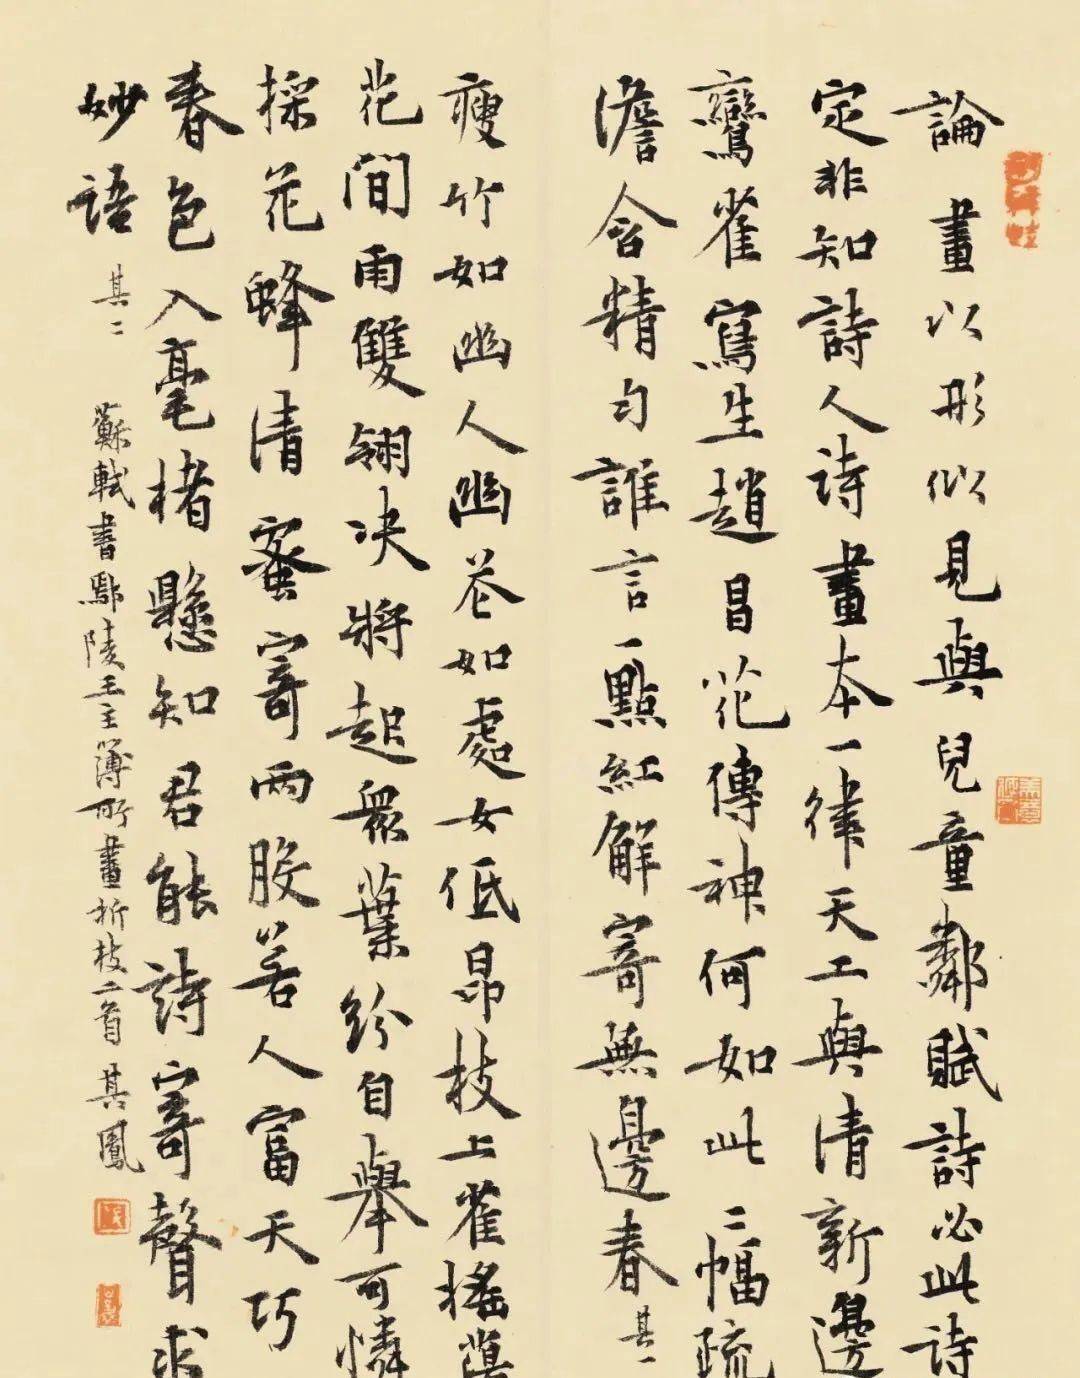 論畫以形似見與兒童鄰賦詩必此詩
定非知詩人詩畫本一律天工與清新邊
鸞雀寫生趙昌花傳神何如此二幅疏
澹含精勻誰言一點紅解寄無邊春 其一
瘦竹如幽人幽花如處女低昂枝上雀搖蕩
花間雨雙翎决將起眾葉紛自舉可憐
採花蜂清蜜寄兩股若人富天巧
春色入毫楮懸知君能詩寄聲求
妙語 其二 蘇軾書鄢陵王主簿所畫折枝二首 其鳳